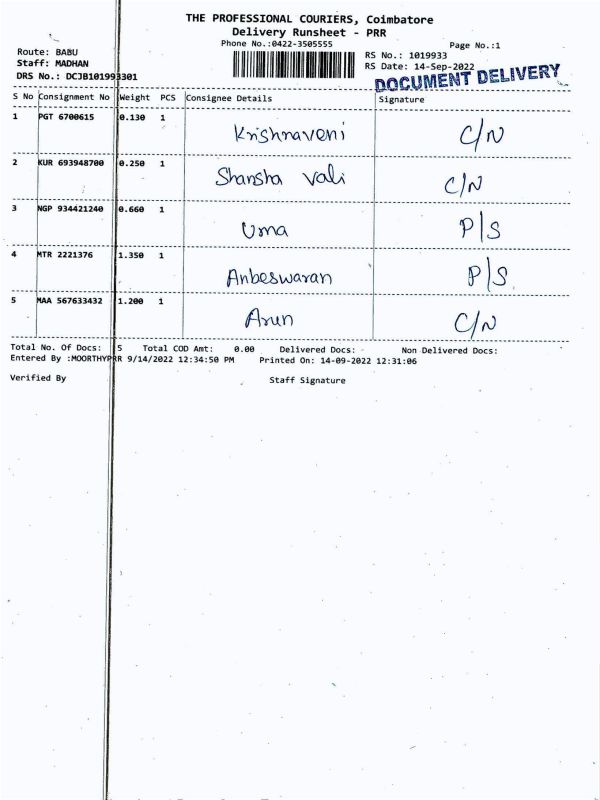 THE PROFESSIONAL COURIERS, Coimbatore
Delivery Runsheet - PRR
Phone No.:0422-3505555
Page No.:1
Route: BABU
RS No.: 1019933
Staff: MADHAN
RS Date: 14-Sep-2022
DRS No.: DCJB101993301
DOCUMENT DELIVERY
S No Consignment No Weight PCS Consignee Details Signature
1 PGT 6700615 0.130 1 Krishnaveni C/N
2 KUR 693948700 0.250 1 Shansha Vali C/N
3 NGP 934421240 0.660 1 Uma P/S
4 MTR 2221376 1.350 1 Anbeswaran P/S
5 MAA 567633432 1.200 1 Arun C/N
Total No. Of Docs: 5 Total COD Amt: 0.00 Delivered Docs: Non Delivered Docs:
Entered By :MOORTHYPRR 9/14/2022 12:34:50 PM Printed On: 14-09-2022 12:31:06
Verified By Staff Signature